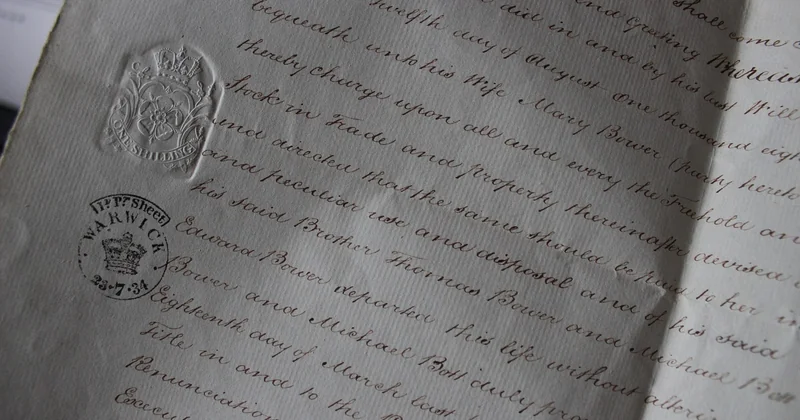 shall come
and granting Whereas
did in and by his last Will
twelfth day of August One thousand eigh
bequeath unto his Wife Mary Bower (party hereto
thereby charge upon all and every the Freehold an
Stock in Trade and property thereinafter devised
and directed that the same should be paid to her in
and peculiar use and disposal and of his said
his said Brother Thomas Bower and Michael Bott
Edward Bower departed this life without alter
Bower and Michael Bott duly pro
Eighteenth day of March last
Title in and to the
Renunciation
Execut
ONE SHILLING
Pr Sheet
WARWICK
23·7·34